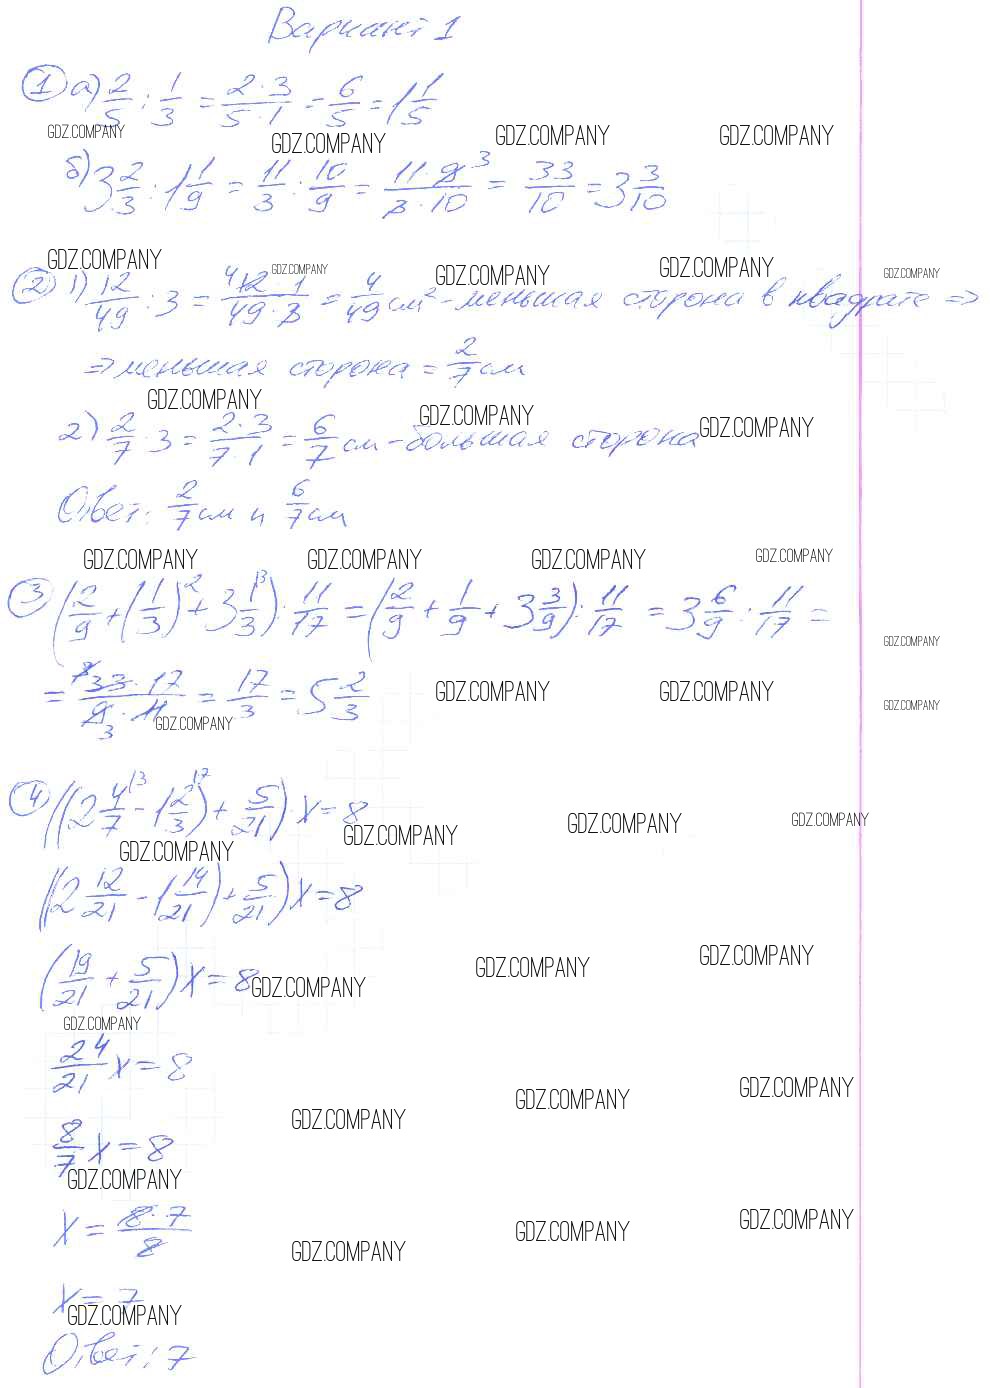 Вариант 1
① а) 2/5 : 1/3 = 2·3/5·1 = 6/5 = 1 1/5
GDZ.COMPANY GDZ.COMPANY GDZ.COMPANY GDZ.COMPANY
б) 3 2/3 : 1 1/9 = 11/3 : 10/9 = 11·9 3/3·10 = 33/10 = 3 3/10
GDZ.COMPANY GDZ.COMPANY GDZ.COMPANY GDZ.COMPANY GDZ.COMPANY
② 1) 12/49 : 3 = 4 12·1/49·3 = 4/49 см² - меньшая сторона в квадрате =>
=> меньшая сторона = 2/7 см
GDZ.COMPANY GDZ.COMPANY GDZ.COMPANY
2) 2/7 · 3 = 2·3/7·1 = 6/7 см - большая сторона
Ответ: 2/7 см и 6/7 см
GDZ.COMPANY GDZ.COMPANY GDZ.COMPANY GDZ.COMPANY
③ (2/9 + (1/3)² + 3 1/3 ⁾³) : 11/17 = (2/9 + 1/9 + 3 3/9) : 11/17 = 3 6/9 : 11/17 =
GDZ.COMPANY
= 33·17/9 3·11 = 17/3 = 5 2/3
GDZ.COMPANY GDZ.COMPANY GDZ.COMPANY GDZ.COMPANY
④ ((2 4/7 ⁾³ - 1 2/3 ⁾⁷) + 5/21) · x = 8
GDZ.COMPANY GDZ.COMPANY GDZ.COMPANY GDZ.COMPANY
((2 12/21 - 1 14/21) + 5/21) x = 8
(19/21 + 5/21) x = 8
GDZ.COMPANY GDZ.COMPANY GDZ.COMPANY
GDZ.COMPANY
24/21 x = 8
GDZ.COMPANY GDZ.COMPANY GDZ.COMPANY
8/7 x = 8
GDZ.COMPANY
x = 8·7/8
GDZ.COMPANY GDZ.COMPANY GDZ.COMPANY
x = 7
GDZ.COMPANY
Ответ: 7